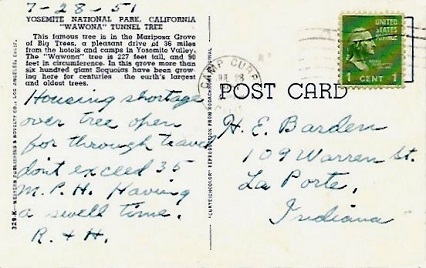 7-28-51
YOSEMITE NATIONAL PARK, CALIFORNIA
"WAWONA" TUNNEL TREE
This famous tree is in the Mariposa Grove
of Big Trees, a pleasant drive of 36 miles
from the hotels and camps in Yosemite Valley.
The "Wawona" tree is 227 feet tall, and 90
feet in circumference. In this grove more than
six hundred giant Sequoias have been grow-
ing here for centuries the earth's largest
and oldest trees.
Housing shortage
over tree open
for through travel
dont exceed 35
M.P.H. Having
a swell time.
R. + H.
CAMP CURRY
POST CARD
1 CENT 1
H. E. Barden
109 Warren St.
La Porte,
Indiana